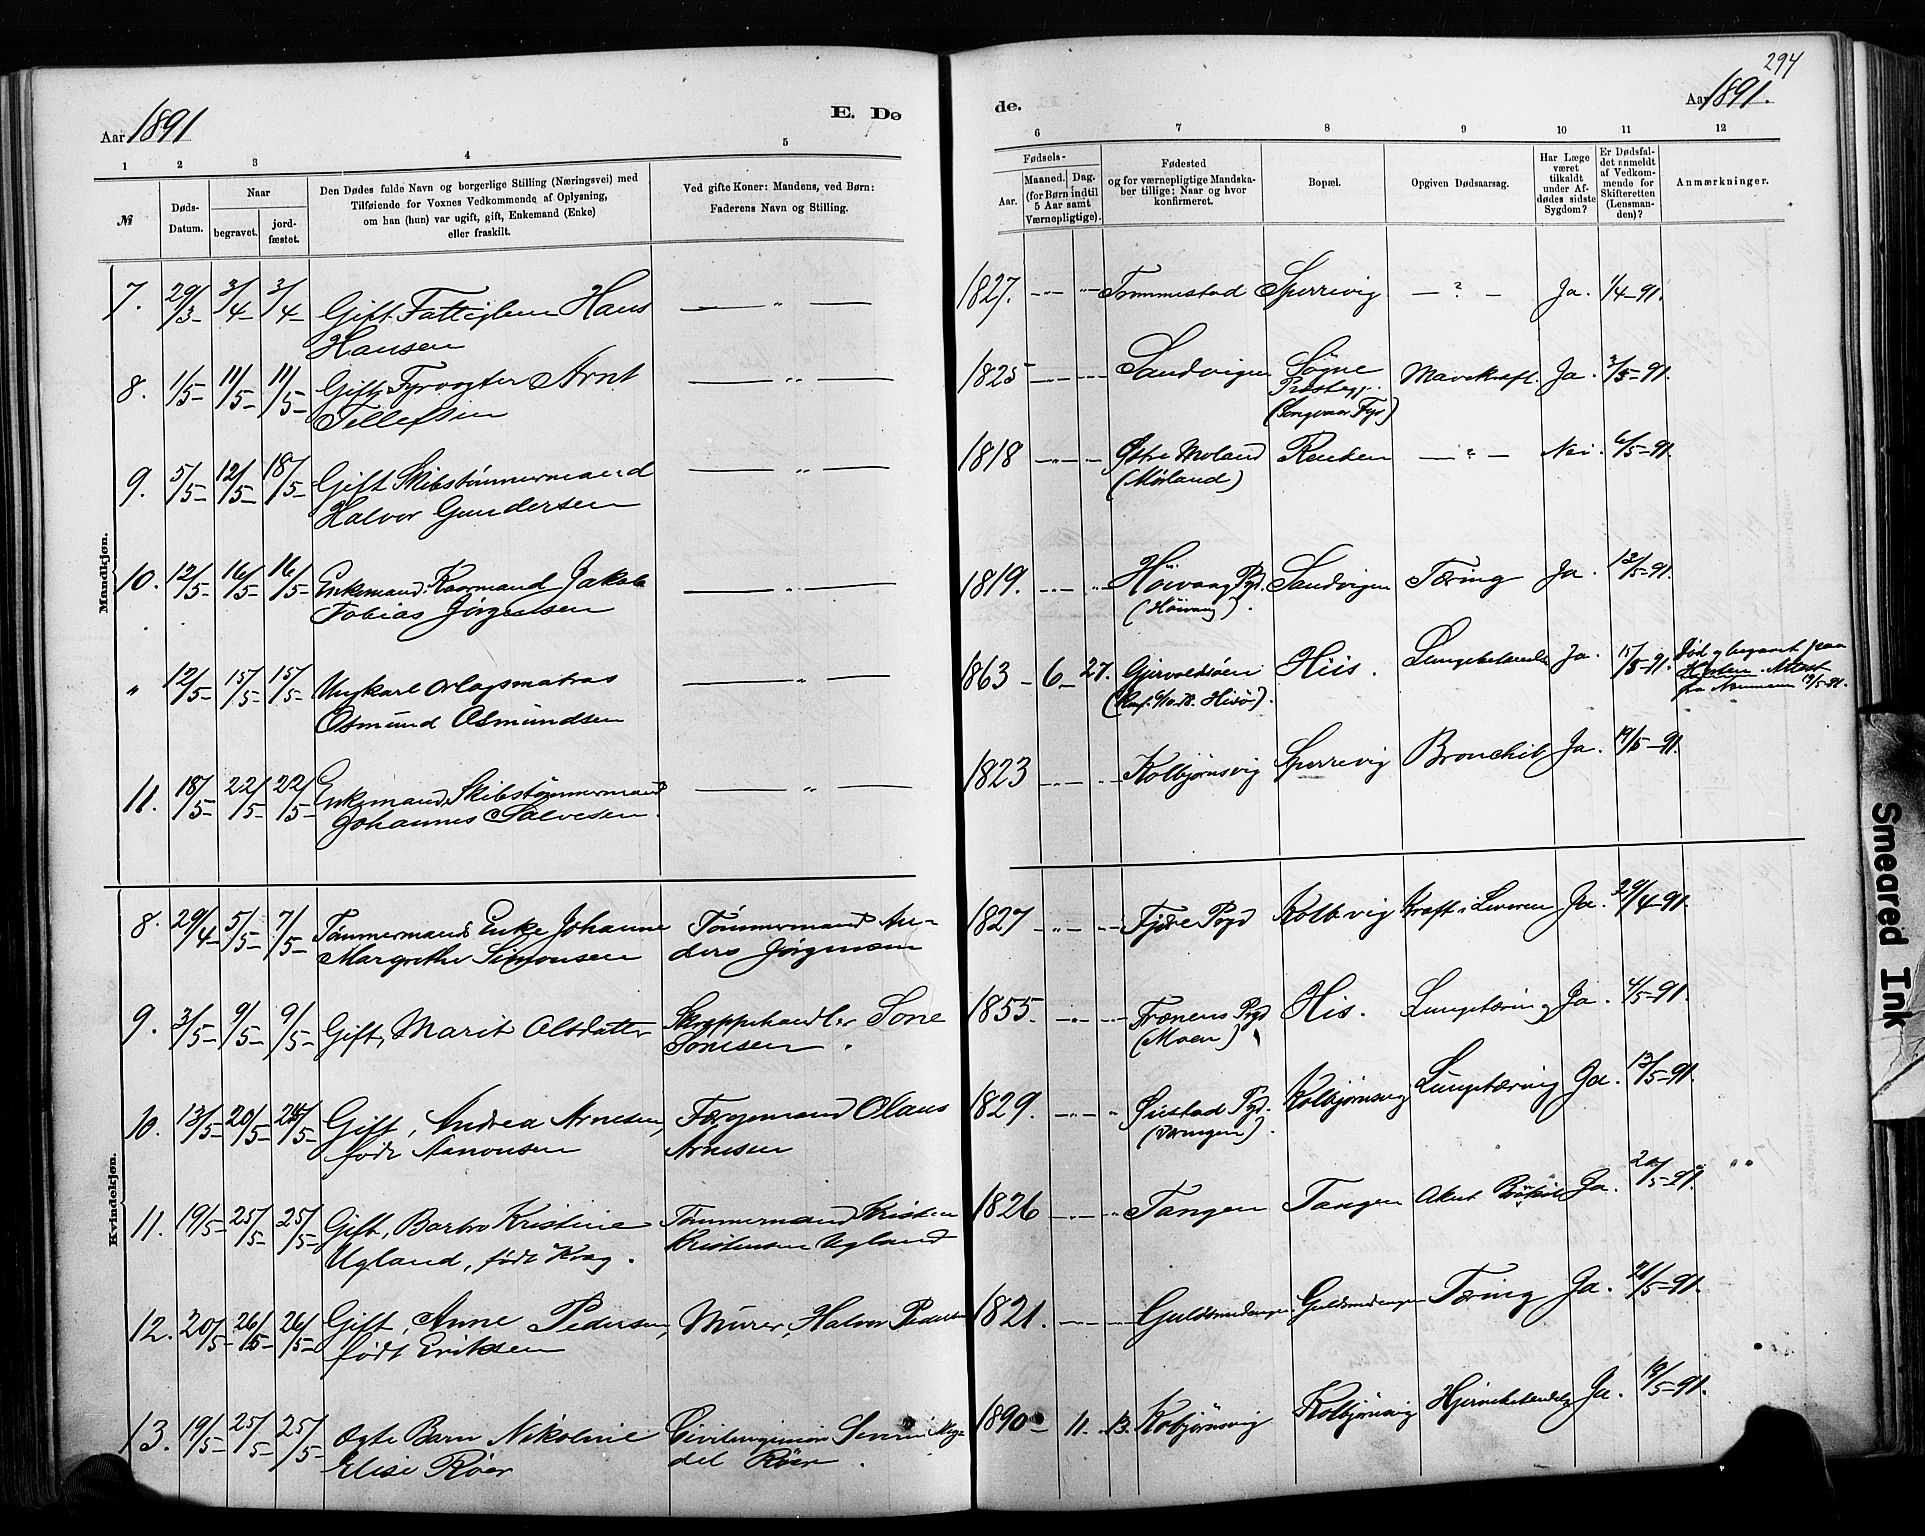 294
Aar 1891
E. Dø
de.
Aar 1891.
1 2 3 4 5
6 7 8 9 10 11 12
№
Døds-
Datum.
Naar
begravet.
jord-
fæstet.
Den Dødes fulde Navn og borgerlige Stilling (Næringsvei) med
Tilføiende for Voxnes Vedkommende af Oplysning,
om han (hun) var ugift, gift, Enkemand (Enke)
eller fraskilt.
Ved gifte Koner: Mandens, ved Børn:
Faderens Navn og Stilling.
Fødsels-
Aar.
Maaned. Dag.
(for Børn indtil
5 Aar samt
Værnepligtige).
Fødested
og for værnepligtige Mandska-
ber tillige: Naar og hvor
konfirmeret.
Bopæl.
Opgiven Dødsaarsag.
Har Læge
været
tilkaldt
under Af-
dødes sidste
Sygdom?
Er Dødsfal-
det anmeldt
af Vedkom-
mende for
Skifteretten
(Lensman-
den)?
Anmærkninger.
Mandkjøn.
7. 29/3 3/4 3/4 Gift Fattiglem Hans
Hansen
1827. Trommestad Sperrevig ? Ja. 1/4-91.
8. 1/5 11/5 11/5 Gift, Fyrvogter Arnt
Tellefsen
1825 Sandvigen Søgne
Præsteg.
(Songvaar Fyr)
Mavekræft. Ja. 3/5-91.
9. 5/5 12/5 18/5 Gift Skibstømmermand
Halvor Gundersen
1818 Østre Moland
(Mørland)
? Nei. 6/5-91.
10. 12/5 16/5 16/5 Enkemand, Jakob
Tobias Jørgensen
1819. Høivaag Pgd.
(Høivaag)
Sandvigen Tæring Ja. 12/5-91.
" 12/5 15/5 15/5 Ungkarl Orlogsmatros
Osmund Osmundsen
1863 6 27. Gjervoldsøen
Hiis. Ja. 15/5-91.
Død og begravet paa
Horten. Attest
11. 18/5 22/5 22/5 Enkemand, Skibstømmermand
Johannes Salvesen.
1823 Kolbjørnsvig Sperrevig Bronchit Ja. 19/5-91.
Kvindekjøn.
8. 29/4 5/5 7/5 Tømmermands Enke Johanne
Margrethe Simonsen
Tømmermand An-
ders Jørgensen
1827 Fjære Pgd Kolb.vig Kræft i Leveren Ja. 29/4-91.
9. 3/5 9/5 9/5 Gift, Marit Olsdatter
Skreppehandler Sone
Sonesen.
1855. Pgd
(Moen)
His. Lungetæring Ja. 4/5-91.
10. 13/5 20/5 Gift, Andrea Arnesen,
født Aanonsen
Færgemand Olaus
Arnesen
1829. Øiestad Pgd.
Kolbjørnsvig Lungetæring Ja. 13/5-91.
11. 19/5 25/5 25/5 Gift, Barbro Kristine
Ugland, født Krag.
Tømmermand Kristen
Kristensen Ugland
1826 Tangen Tangen Akut Ja. 20/5-91.
12. 20/5 26/5 26/5 Gift, Anne Pedersen,
født Eriksen
Murer, Halvor Pedersen
1821. Guldsmedengen. Guldsmedengen Tæring Ja. 21/5-91.
13. 19/5 25/5 25/5 Ogte Barn Nikoline
Elise Røer
Civilingeniør Severin Mag-
del Røer.
1890 11. 13. Kolbjørnsvig Kolbjørnsvig Hjernebetændelse Ja. 19/5-91.
Smeared Ink